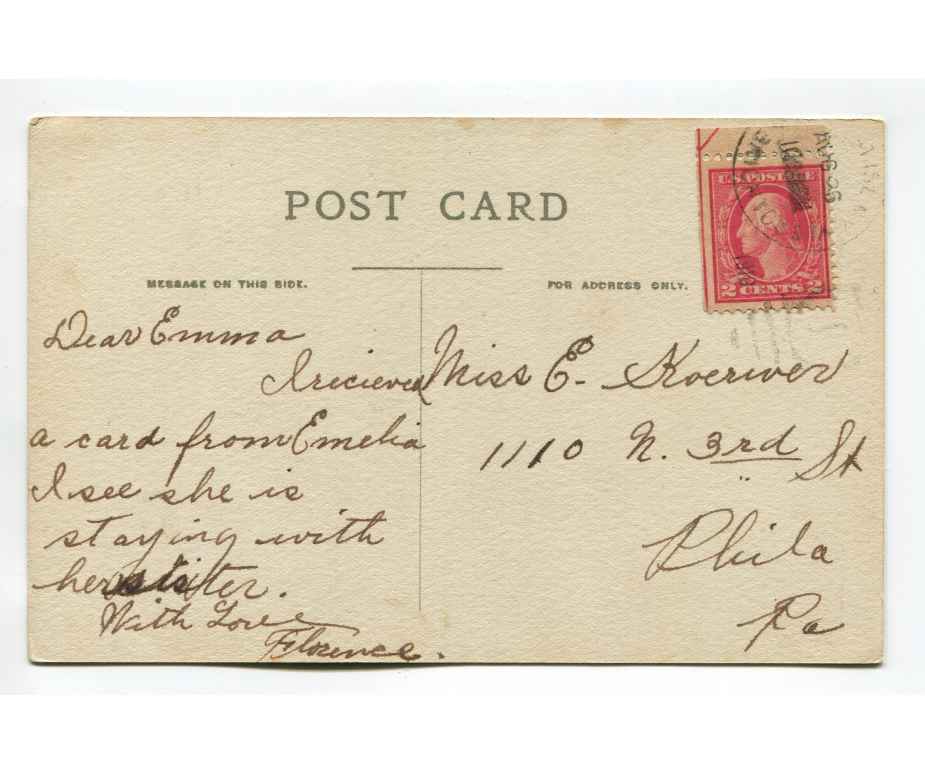 POST CARD
MESSAGE ON THIS SIDE.
FOR ADDRESS ONLY.
U.S. POSTAGE
2 CENTS 2
AUG 26
Dear Emma
I recieved
a card from Emelia
I see she is
staying with
her sister.
With Love
Florence.
Miss E. Koerwer
1110 N. 3rd St
Phila
Pa